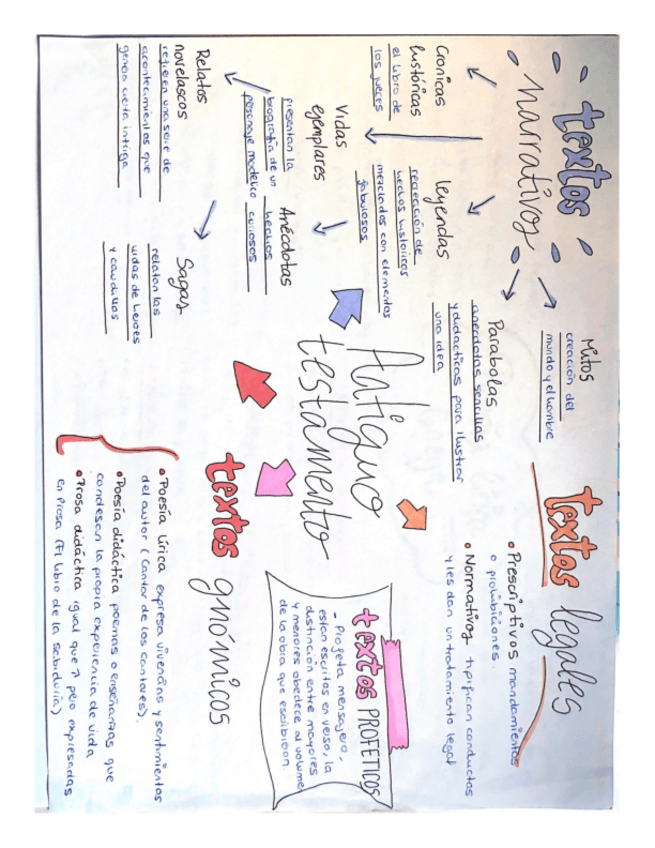 textos
narrativos
Mitos
creación del
mundo y el hombre
Parabolas
anecdotas sencillas
y didacticas para ilustrar
una idea
Cronicas
históricas
el libro de
los jueces
leyendas
recreación de
hechos historicos
mezclados con elementos
fabulosos
Vidas
ejemplares
presentan la
biografía de un
personaje modelico
Anécdotas
hechos
curiosos
Relatos
novelescos
refieren una serie de
acontecimientos que
genera cierta intriga
Sagas
relatan las
vidas de heroes
y caudillos
Antiguo
testamento
textos legales
• Prescriptivos mandamientos
o prohibiciones.
• Normativos tipifican conductas
y les dan un tratamiento legal
textos PROFÉTICOS
- Profeta mensajero,
estan escritos en verso, la
distinción entre mayores
y menores obedece al volumen
de la obra que escribieron.
textos gnómicos
• Poesía lírica expresa vivencias y sentimientos
del autor (Cantar de los cantares).
• Poesía didáctica poemas o enseñanzas que
condesan la propia experiencia de vida
• Prosa didáctica igual que ↑ pero expresadas
en Prosa (El libro de la sabiduría)